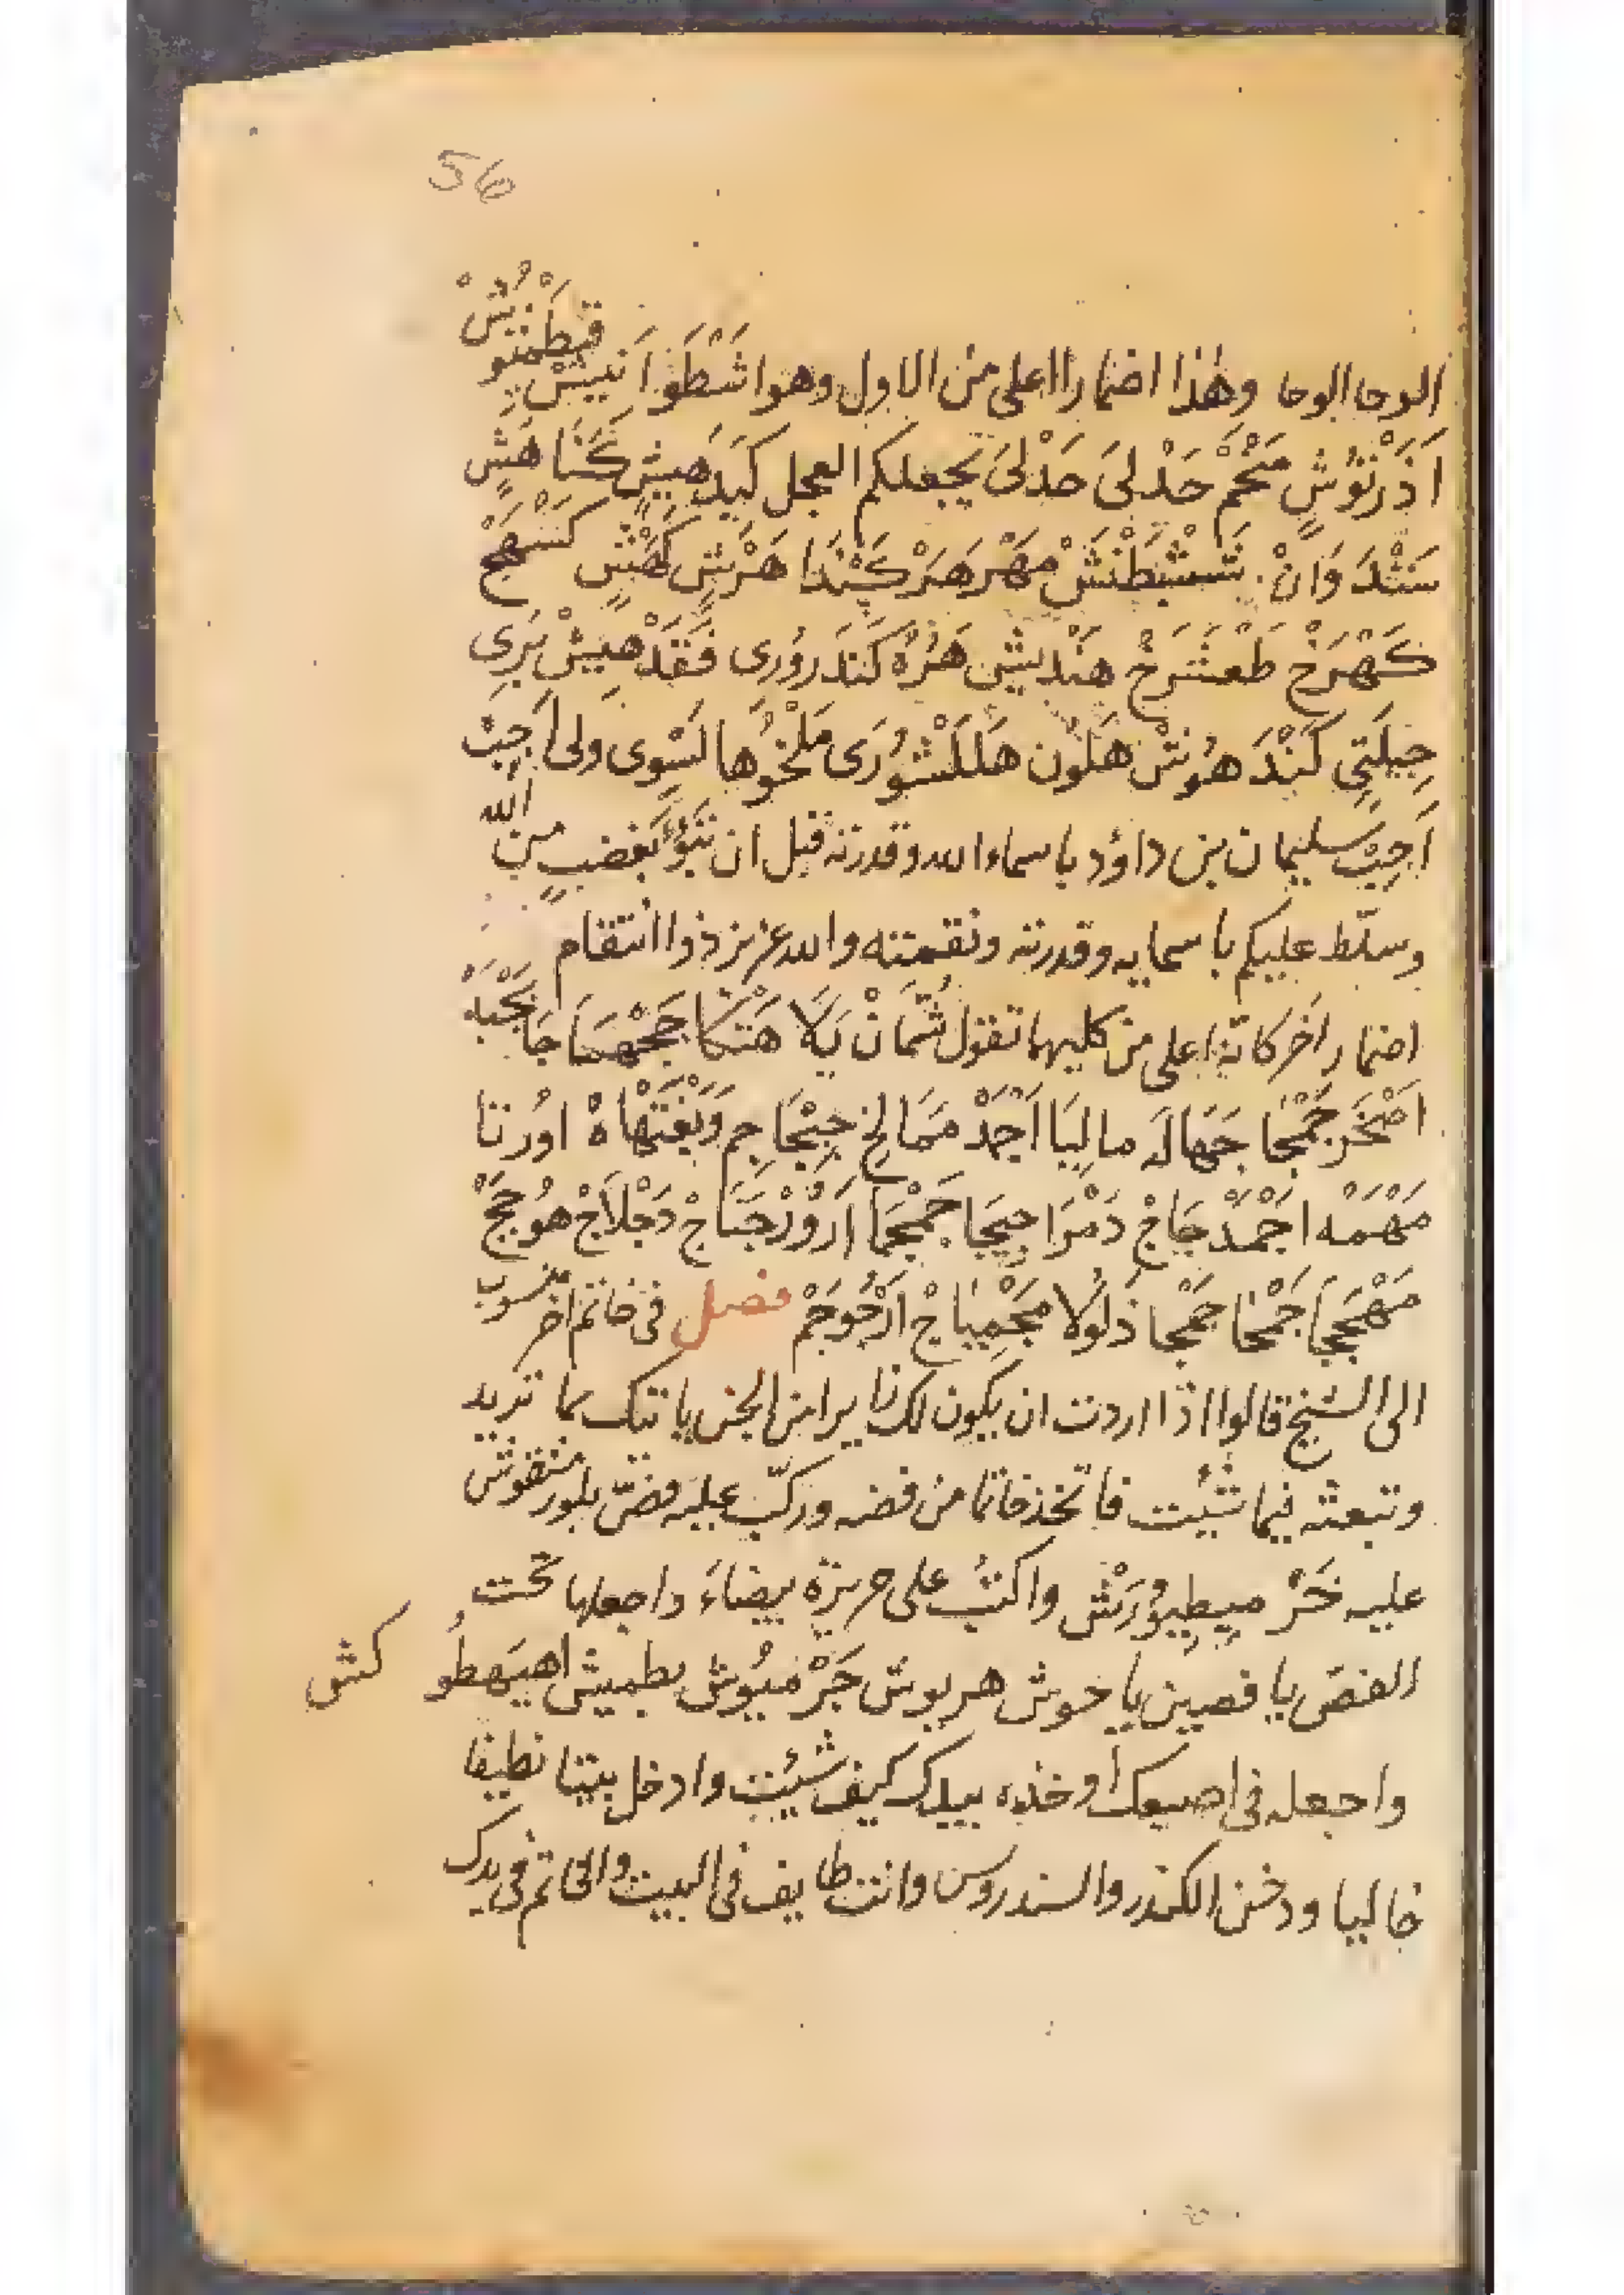 56
الوحا الوحا وهٰذا اضمارا اعلى من الاول وهو اشَطْوَا نَبِيسْ قيطمْنُوشْ
اَذَرْنُوُشٍ مَخْمْ حَدْلىَ حَدْلىَ يجعلكم العجل كَيَدَهِيشٍ كَنَاهَشٍ
سَنْدَوَانْ نَشْشَطْنَشْ مَهْرهَرْكَنْدَا هَرْشٍ كَهَشٍ كَنْهَجْ
كَهْرَخْ طَعْشَرَخْ هَنْدِيشْ هَرُهُ كَنَدَ روُرى فَقَدْهِيشْ بَرِى
جِبِلَتِى كَنْدَ هوُنَشْ هَلوُن هَلَلَشْوُرَى مَلْخوُها لسْوى ولى اَجِبْ
اَجِبْ سليمان بن داؤد باسماء الله وقدرته قبل ان تبَوُّءُ بغضبٍ من الله
وسلّط عليكم باسمايه وقدرته ونقمته والله عزيز ذوا انتقام
اضمار اخر كانّه اعلى من كليهما تقول شُمَّانْ يَلَا هَتكَا جَجْهَا جَانَجْبَهْ
اَصْخَرَ جَمْجَا جَمَهالَه مالِيَا اَجْمَدْ مَمَالِخ جِيْجَاجِم وَبَغْتَهاهْ اوُرنا
مَهْمَهْ اجْمَدْ جَاجْ دَمْرَا جِيجَا جَمْجَمَا اَرَوُرْجَنَاجْ دَجْلَاجْ هوُجَجْ
مَهْجَجَا جَمْخَا جَمْجا ذَلوُلَا مَجْمِيَاجْ اَرْجُوجَمْ فصل فى خاتم اخر منسوب
الى الشيخ قالوا اذا اردت ان يكون لك زايرا من الجن ياتيك بما تريد
وتبعثه فيما شئت فاتخذ خاتما من فضه وركّب عليه فصّ بلور منقوش
عليه خَرْ مِيِطِيوُرَشْ واكتُب على حريرة بيضاءَ واجعلها تحت
الفصّ يا فصين يا خوش هربوش جَرْمَيُوش بطميش اهيَهطُو كش
واجعله فى اصبعك أو خذه بيدك كيف شئيت وادخل بيتا نظيفا
خاليا ودخن الكندر والسندروس وانت طايف فى البيت والخاتم فى يدك